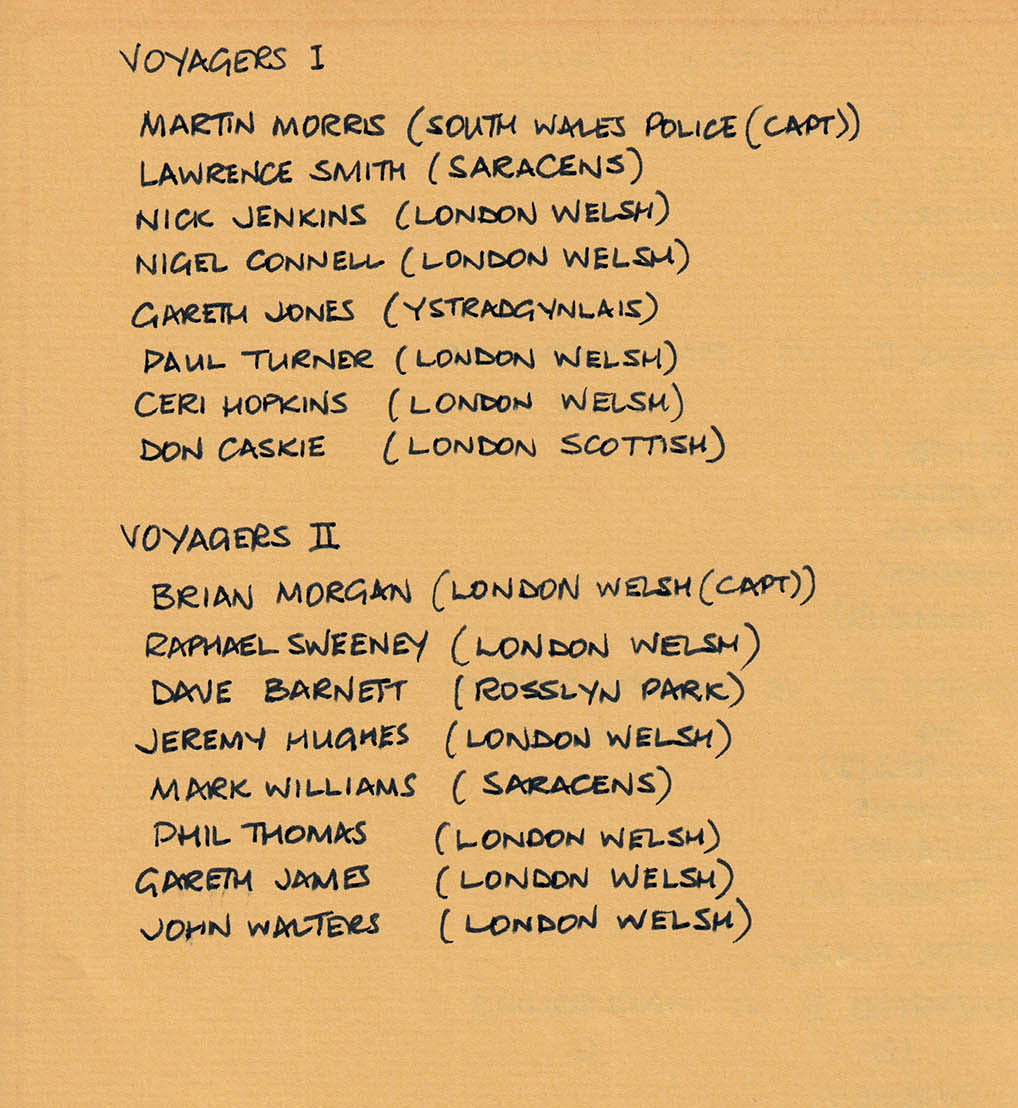 VOYAGERS I
MARTIN MORRIS (SOUTH WALES POLICE (CAPT))
LAWRENCE SMITH (SARACENS)
NICK JENKINS (LONDON WELSH)
NIGEL CONNELL (LONDON WELSH)
GARETH JONES (YSTRADGYNLAIS)
PAUL TURNER (LONDON WELSH)
CERI HOPKINS (LONDON WELSH)
DON CASKIE (LONDON SCOTTISH)
VOYAGERS II
BRIAN MORGAN (LONDON WELSH (CAPT))
RAPHAEL SWEENEY (LONDON WELSH)
DAVE BARNETT (ROSSLYN PARK)
JEREMY HUGHES (LONDON WELSH)
MARK WILLIAMS (SARACENS)
PHIL THOMAS (LONDON WELSH)
GARETH JAMES (LONDON WELSH)
JOHN WALTERS (LONDON WELSH)